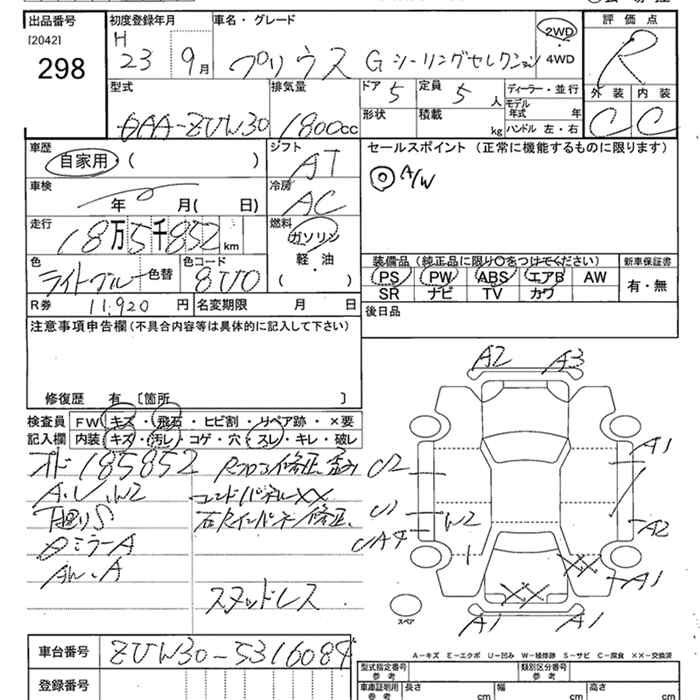 出品番号
[2042]
298
初度登録年月
H
23 9月
車名・グレード
プリウス Gツーリングセレクション
2WD
4WD
評価点
R
外装 内装
C C
型式
DAA-ZVW30
排気量
1800cc
ドア 5
形状
定員 5人
積載 kg
ディーラー・並行
モデル年式 年
ハンドル 左・右
車歴
自家用・( )
シフト
AT
セールスポイント (正常に機能するものに限ります)
◎ A/W
車検
年 月( 日)
冷房
AC
走行
18万5千852km
燃料
ガソリン
軽・油
( )
色
ライトブルー
色替
色コード
8V0
装備品(純正品に限り○をつけてください)
PS PW ABS エアB AW
SR ナビ TV カワ
新車保証書
有・無
R券 11,920 円
名変期限 月 日
後日品
注意事項申告欄(不具合内容等は具体的に記入して下さい)
修復歴 有 [箇所 ]
検査員記入欄
FW キズ・飛石・ヒビ割・リペア跡・×要
内装 キズ・汚レ・コゲ・穴・スレ・キレ・破レ
オド185852
下廻りS
ミラーA
エンドパネルXX
スタッドレス
A2 A3
U2
A1
U1
W2
A2
UA4
XX
XX
A1
A1 A1
スペア
A-キズ E-エクボ U-凹み W-補修跡 S-サビ C-腐食 XX-交換済
車台番号
ZVW30-5316084
登録番号
型式指定番号
参考
類別区分番号
参考
車庫証明用
参考
長さ cm
幅 cm
高さ cm